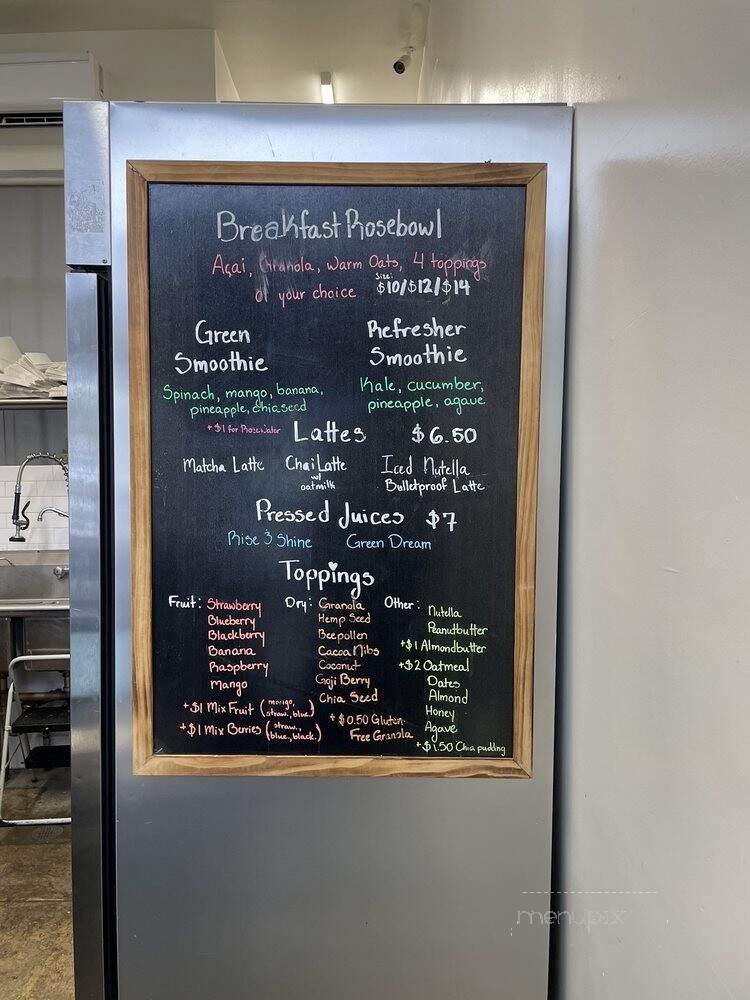 Breakfast Rosebowl
Açai, Granola, warm Oats, 4 toppings
of your choice
Size:
$10/$12/$14
Green
Smoothie
Spinach, mango, banana,
pineapple, chiaseed
+$1 for Rosewater
Refresher
Smoothie
Kale, cucumber,
pineapple, agave
Lattes $6.50
Matcha Latte
Chai Latte
w/
oatmilk
Iced Nutella
Bulletproof Latte
Pressed Juices $7
Rise 3 Shine Green Dream
Toppings
Fruit: Strawberry
Blueberry
Blackberry
Banana
Raspberry
Mango
+$1 Mix Fruit (mango, straw., blue.)
+$1 Mix Berries (straw., blue., black.)
Dry: Granola
Hemp Seed
Beepollen
Cacao Nibs
Coconut
Goji Berry
Chia Seed
+$0.50 Gluten-
Free Granola
Other:
Nutella
Peanutbutter
+$1 Almondbutter
+$2 Oatmeal
Dates
Almond
Honey
Agave
+$1.50 Chia pudding
menupix